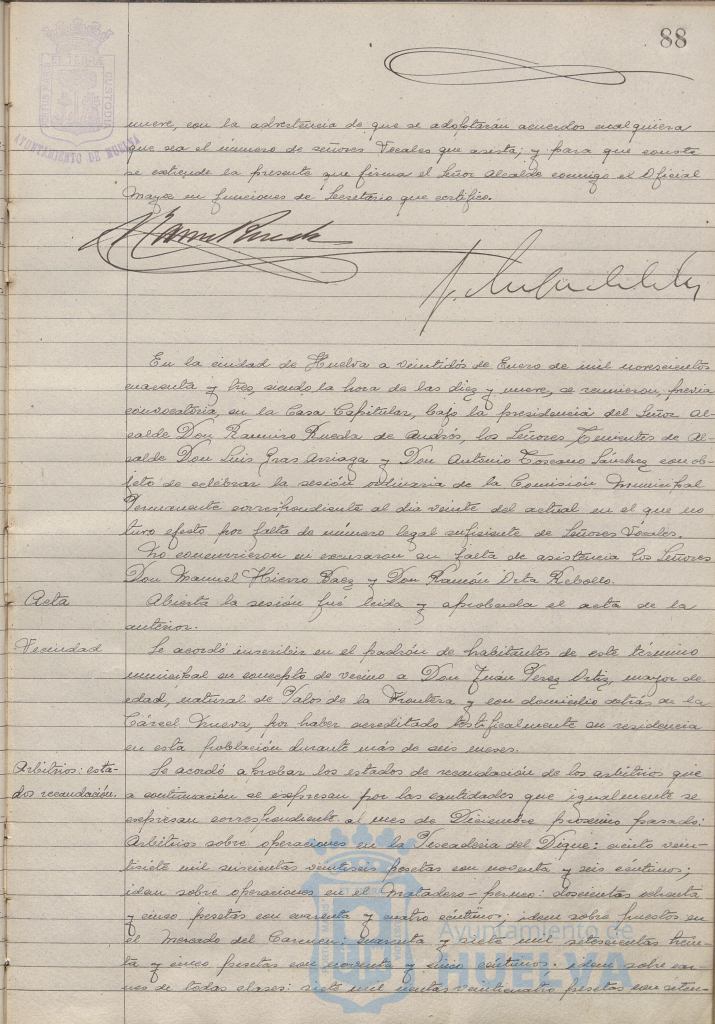 88
AYUNTAMIENTO DE HUELVA
nueve, con la advertencia de que se adoptarán acuerdos cualquiera
que sea el número de señores Vocales que asista; y para que conste
se extiende la presente que firma el Señor Alcalde conmigo el Oficial
Mayor en funciones de Secretario que certifico.
En la ciudad de Huelva a veintidós de Enero de mil novecientos
cuarenta y tres, siendo la hora de las diez y nueve, se reunieron, previa
convocatoria, en la Casa Capitular, bajo la presidencia del Señor Al-
calde Don Ramiro Rueda de Andrés, los Señores Tenientes de Al-
calde Don Luis Gras Arriaga y Don Antonio Toscano Sánchez con ob-
jeto de celebrar la sesión ordinaria de la Comisión Municipal
Permanente correspondiente al día veinte del actual en el que no
tuvo efecto por falta de número legal suficiente de Señores Vocales.
No concurrieron ni excusaron su falta de asistencia los Señores
Don Manuel Hierro Paez y Don Ramón Orta Rebollo.
Acta
Abierta la sesión fué leida y aprobada el acta de la
anterior.
Vecindad
Se acordó inscribir en el padrón de habitantes de este término
municipal en concepto de vecino a Don Juan Perez Ortiz, mayor de
edad, natural de Palos de la Frontera y con domicilio detrás de la
Cárcel Nueva, por haber acreditado testificalmente su residencia
en esta población durante más de seis meses.
Arbitrios: esta-
dos recaudación.
Se acordó aprobar los estados de recaudación de los arbitrios que
a continuación se expresan por las cantidades que igualmente se
expresan correspondiente al mes de Diciembre próximo pasado:
Arbitrios sobre operaciones en la Pescadería del Dique: ciento vein-
tisiete mil seiscientas veintiseis pesetas con noventa y seis céntimos;
idem sobre operaciones en el Matadero - perneo: doscientas ochenta
y cinco pesetas con cuarenta y cuatro céntimos; idem sobre puestos en
el Mercado del Carmen: cuarenta y siete mil setecientas trein-
ta y cinco pesetas con noventa y cinco céntimos. idem sobre car-
nes de todas clases: siete mil veinticuatro pesetas con seten-
Ayuntamiento de
HUELVA